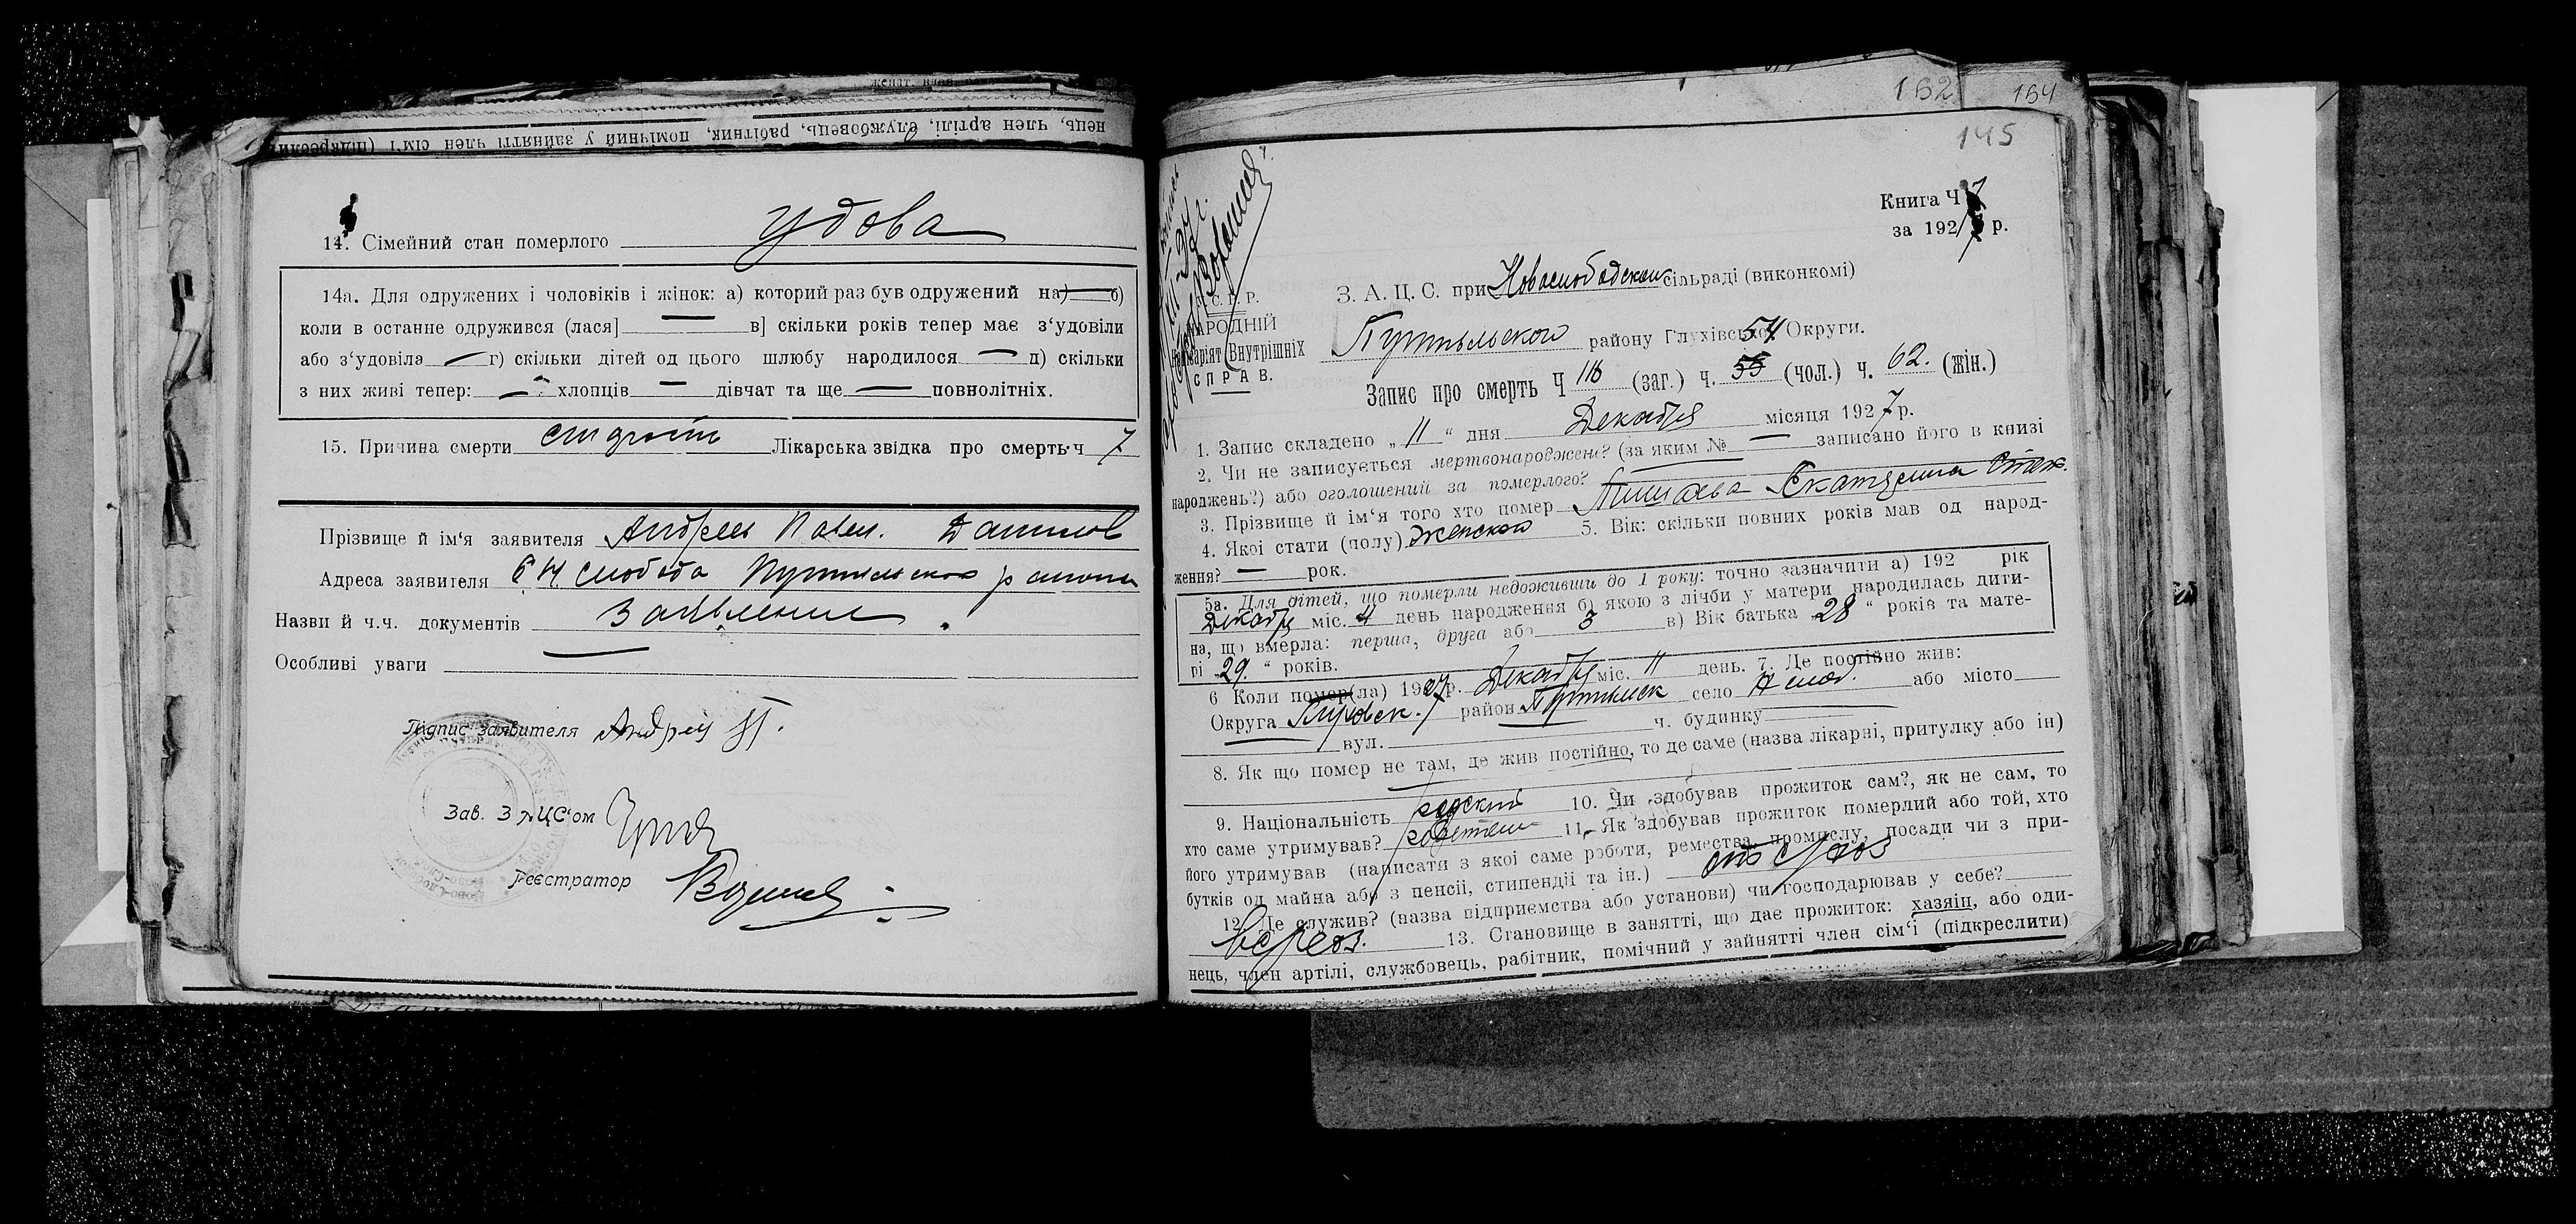 нець, член артілі, службовець, рабітник, помічний у зайнятті член сім'ї (підкреслити)
14. Сімейний стан померлого удова
14а. Для одружених і чоловіків і жінок: а) которий раз був одружений на) — б)
коли в останне одружився (лася] — в] скільки років тепер має з'удовіли
або з'удовіла — г) скільки дітей од цього шлюбу народилося — д) скільки
з них живі тепер: — хлопців — дівчат та ще — повнолітніх.
15. Причина смерти Лікарська звідка про смерть ч 7
Прізвище й ім'я заявителя Андрей Павл. Данилов
Адреса заявителя Н Слобода Путивльского района
Назви й ч.ч. документів Заявление
Особливі уваги —
Підпис заявителя Андрей
Зав. ЗАЦС'ом
Реєстратор
162 164
145
Книга Ч 7
за 1927 р.
З. А. Ц. С. при Новослободском сільраді (виконкомі)
С. Р. Р.
НАРОДНІЙ
Комісаріят Внутрішніх
СПРАВ.
Путивльского району Глухівської Округи.
54
Запис про смерть Ч 116 (заг.) ч. 55 (чол.) ч. 62. (жін.)
1. Запис складено „11“ дня Декабря місяця 1927 р.
2. Чи не записується мертвонароджене? (за яким № — записано його в книзі
народжень?) або оголошений за померлого?
3. Прізвище й ім'я того хто помер Екатерина
4. Якої стати (полу) женского 5. Вік: скільки повних років мав од народ-
ження? — рок.
5а. Для дітей, що померли недоживши до 1 року: точно зазначити а) 192 рік
Декабря міс. 4 день народження б) якою з лічби у матери народилась дити-
на, що вмерла: перша, друга або 3 в) Вік батька 28 “ років та мате-
рі 29. “ років.
6 Коли помер(ла) 1927 р. Декабря міс. 11 день. 7. Де постійно жив:
Округа район Путивльск село Н слоб. або місто
вул. ч. будинку
8. Як що помер не там, де жив постійно, то де саме (назва лікарні, притулку або ін)
9. Національність русский 10. Чи здобував прожиток сам?, як не сам, то
хто саме утримував? 11. Як здобував прожиток померлий або той, хто
його утримував (написати з якої саме роботи, ремества, промислу, посади чи з при-
бутків од майна або з пенсії, стипендії та ін.)
12. Де служив? (назва підприємства або установи) чи господарював у себе?
13. Становище в занятті, що дає прожиток: хазяін, або оди-
нець, член артілі, службовець, рабітник, помічний у зайнятті член сім'ї (підкреслити)